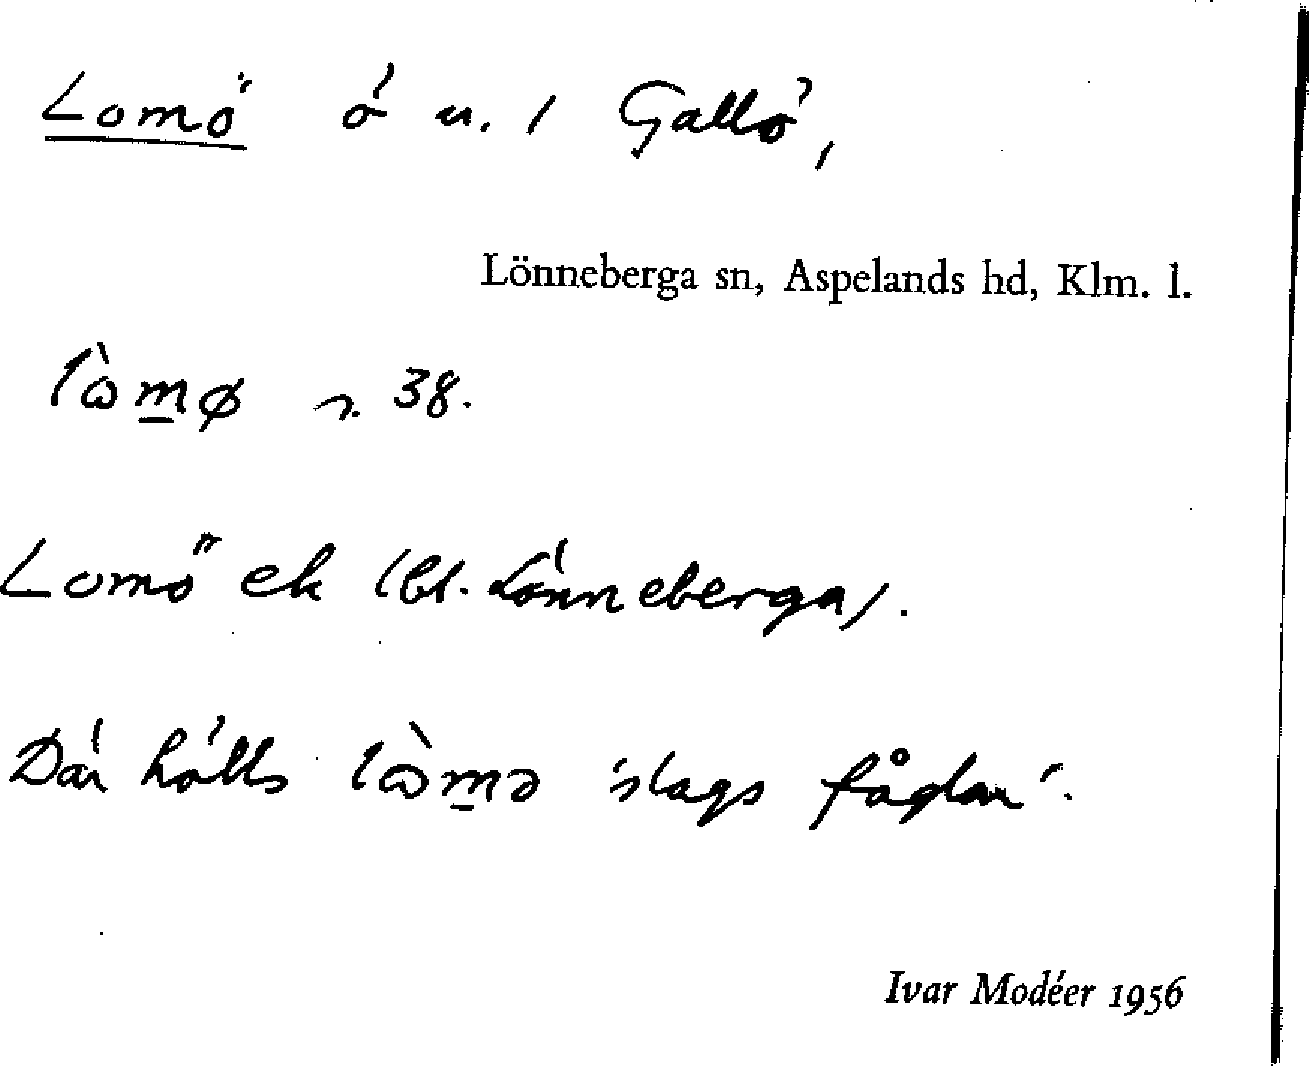 Lomö ö u. / Gallö,
Lönneberga sn, Aspelands hd, Klm. l.
lὼm̲ø r. 38.
Lomö ek (bl. Lönneberga).
Där hölls lὼm̲ə 'slags fåglar'.
Ivar Modéer 1956